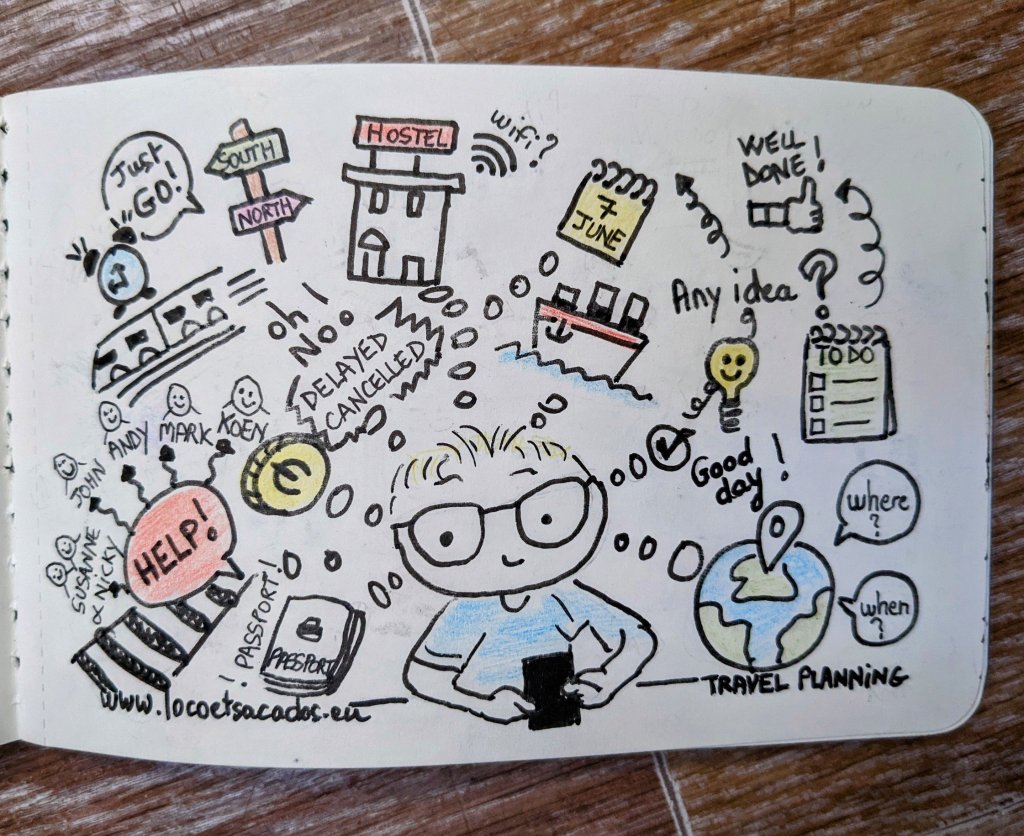 Just
GO!
SOUTH
NORTH
HOSTEL
wifi?
7
JUNE
WELL
DONE!
Any idea
?
oh
No
DELAYED
CANCELLED
TO DO
Good
day!
where
?
when
?
KOEN
MARK
ANDY
JOHN
SUSANNE
& NICKY
HELP!
€
! PASSPORT!
PASSPORT
www.locoetsacados.eu
TRAVEL PLANNING